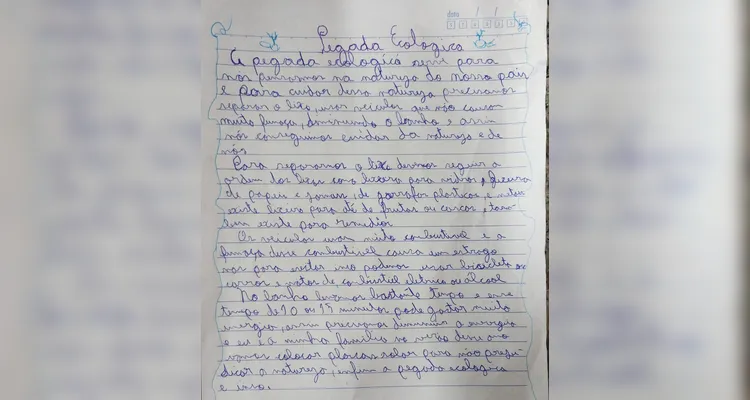 data / /
Pegada Ecologica
A pegada ecologica serve para
nos pensarmos na natureza do nosso pais
e para cuidar dessa natureza precisamos
separar o lixo, usar veiculos que não causa
muito fumaça, diminuindo o banho e assim
nós conseguimos cuidar da natureza e de
nós.
Para separarmos o lixo devemos seguir a
ordem dos lixos como lixeira para vidros, lixeira
de papeis e jornais, de garrafas plasticas, e
existe lixeira para até de frutas ou cascas, tam-
bem existe para remedios
Os veiculos usam muito combustivel e a
fumaça desse combustivel causa um estrago
mas para evitar isso podemos usar bicicleta ou
carros e motos de combustivel eletrico ou alcool
No banho levamos bastante tempo e esse
tempo de 10 ou 15 minutos pode gastar muita
energia, assim precisamos diminuir a energia
e eu e a minha familia no verão desse ano
vamos colocar placas solar para não preju-
dicar a natureza, enfim a pegada ecologica
e isso.